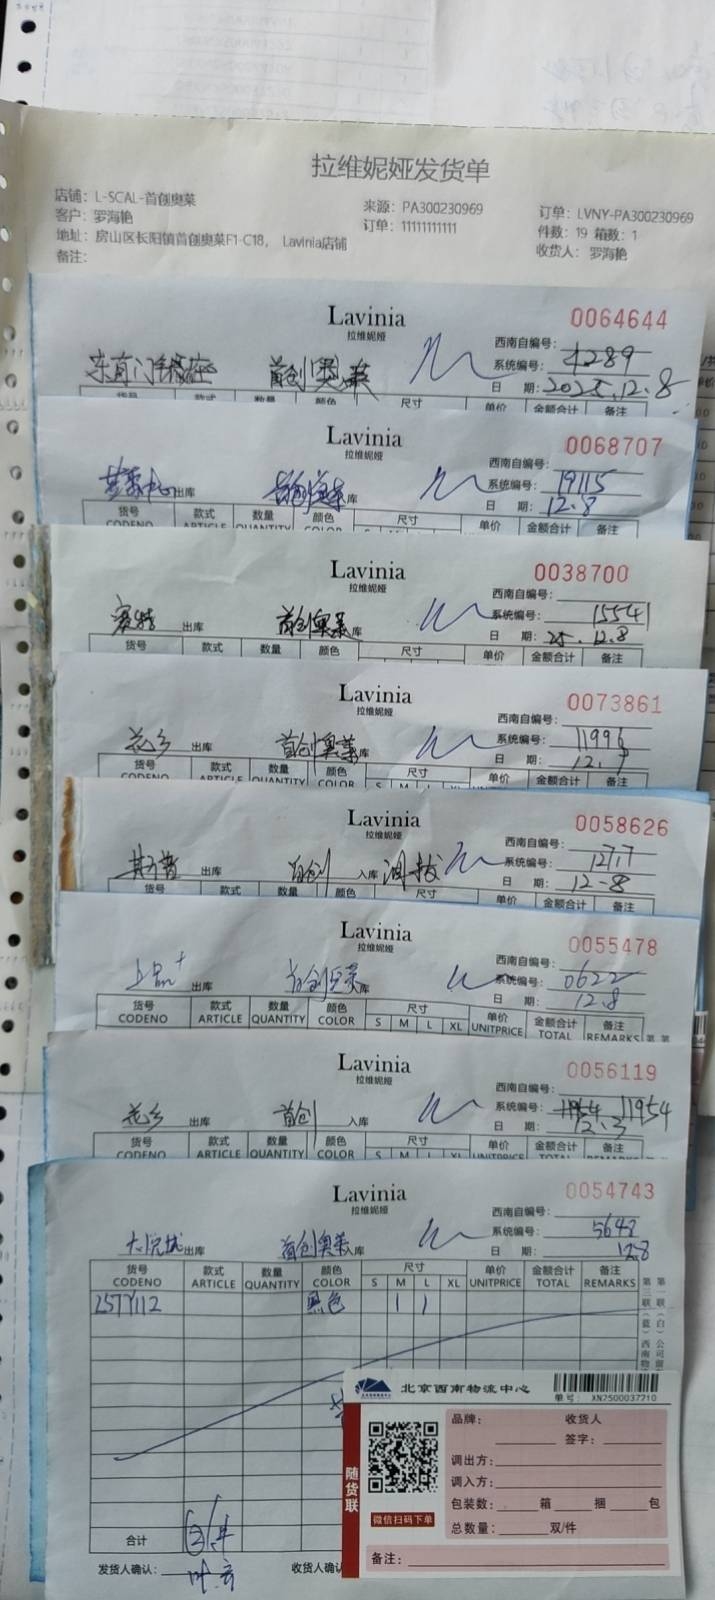 拉维妮娅发货单
店铺：L-SCAL-首创奥莱
来源：PA300230969
订单：LVNY-PA300230969
客户：罗海艳
订单：11111111111
件数：19 箱数：1
地址：房山区长阳镇首创奥莱F1-C18， Lavinia店铺
收货人：罗海艳
备注：
Lavinia
拉维妮娅
0064644
西南自编号：
系统编号：4289
首创奥莱
日 期：2025.12.8
货号 款式 数量 颜色 尺寸 单价 金额合计 备注
Lavinia
拉维妮娅
0068707
西南自编号：
系统编号：19115
出库 库
日 期：12.8
货号 款式 数量 颜色 尺寸 单价 金额合计 备注
CODENO ARTICLE QUANTITY COLOR
Lavinia
拉维妮娅
0038700
西南自编号：
系统编号：15541
赛特 出库 首创奥莱 库
日 期：25.12.8
货号 款式 数量 颜色 尺寸 单价 金额合计 备注
Lavinia
拉维妮娅
0073861
西南自编号：
系统编号：11996
花乡 出库 首创奥莱 库
日 期：12.7
货号 款式 数量 颜色 尺寸 单价 金额合计 备注
CODENO ARTICLE QUANTITY COLOR S M L XL
Lavinia
拉维妮娅
0058626
西南自编号：
系统编号：1277
出库 首创 入库 调拨
日 期：12-8
货号 款式 数量 颜色 尺寸 单价 金额合计 备注
Lavinia
拉维妮娅
0055478
西南自编号：
系统编号：0622
上品+ 出库 首创奥莱 库
日 期：12.8
货号 款式 数量 颜色 尺寸 单价 金额合计 备注
CODENO ARTICLE QUANTITY COLOR S M L XL UNITPRICE TOTAL REMARKS
Lavinia
拉维妮娅
0056119
西南自编号：
系统编号：11954
花乡 出库 首创 入库
日 期：12.3
货号 款式 数量 颜色 尺寸 单价 金额合计 备注
CODENO ARTICLE QUANTITY COLOR S M L XL UNITPRICE TOTAL REMARKS
Lavinia
拉维妮娅
0054743
西南自编号：
系统编号：5648
出库 首创奥莱 入库
日 期：12.8
货号 款式 数量 颜色 尺寸 单价 金额合计 备注
CODENO ARTICLE QUANTITY COLOR S M L XL UNITPRICE TOTAL REMARKS
257Y112 黑色 1 1
合计
发货人确认：
收货人确认
北京西南物流中心
单号：XN2500037710
随货联
微信扫码下单
品牌： 收货人
签字：
调出方：
调入方：
包装数： 箱 捆 包
总数量： 双/件
备注：